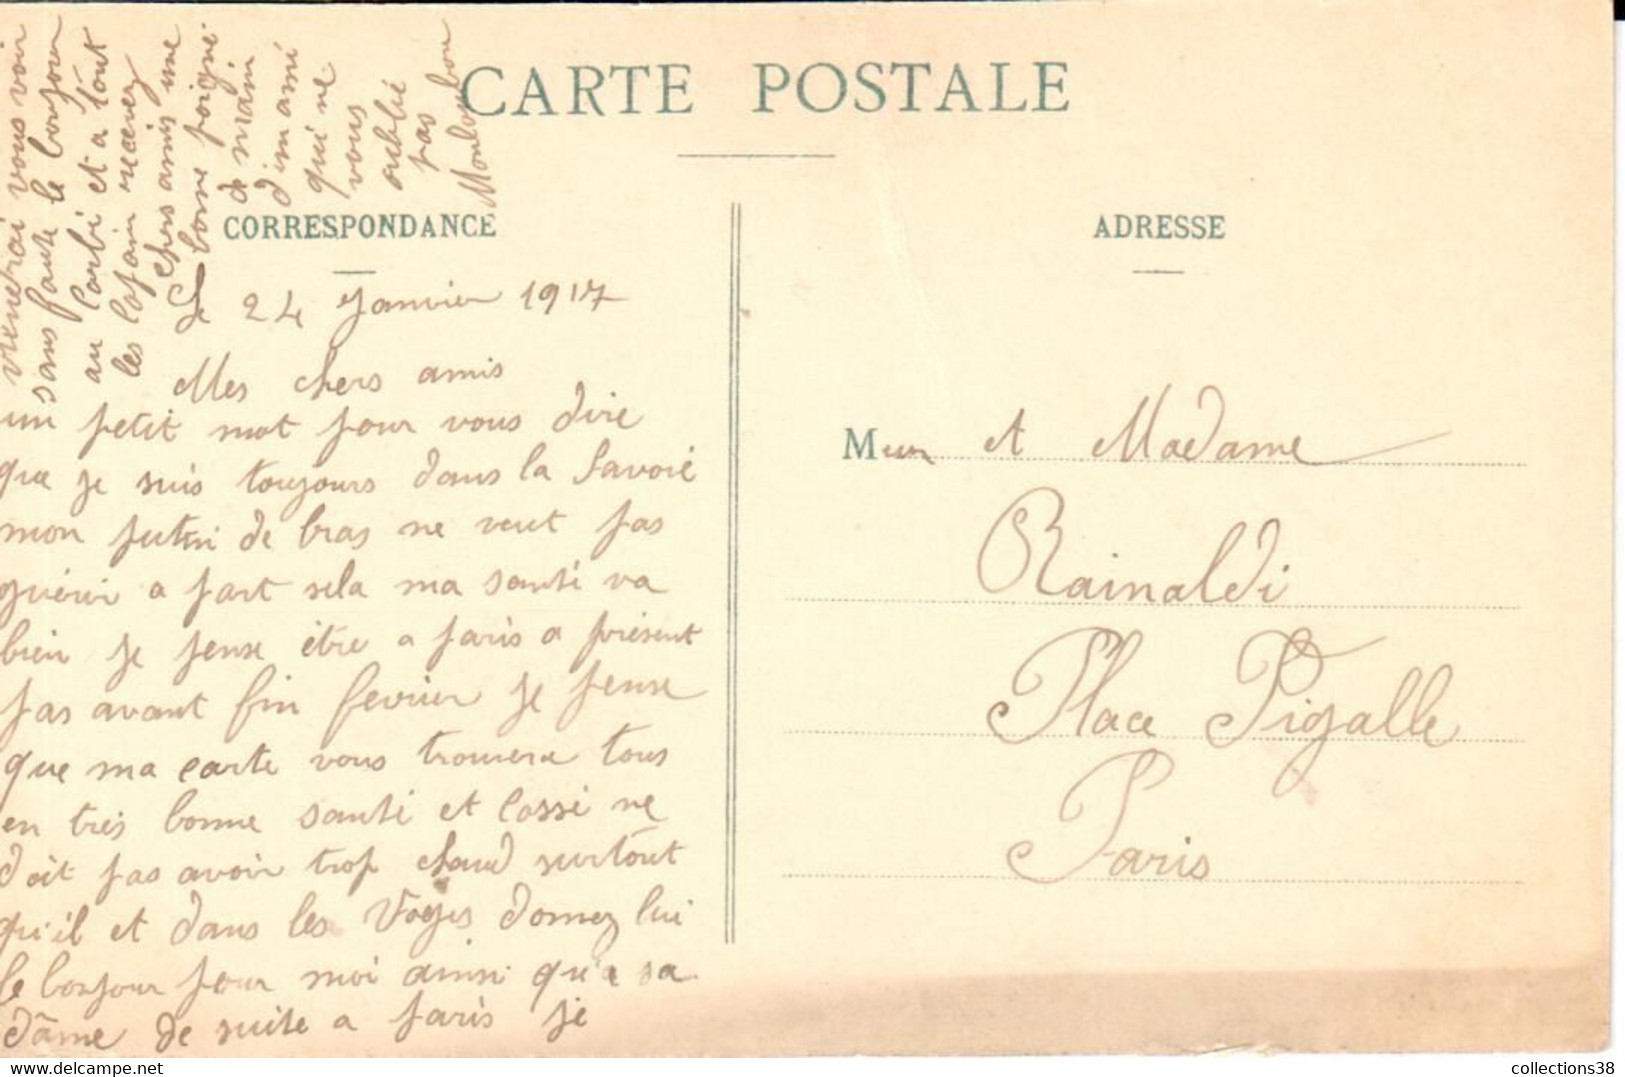 CARTE POSTALE
CORRESPONDANCE
Le 24 Janvier 1917
Mes chers amis
un petit mot pour vous dire
que je suis toujours dans la Savoie
mon putin de bras ne veut pas
guérir a part sela ma santé va
bien je pense être a paris a présent
pas avant fin fevrier je pense
que ma carte vous trouvera tous
en très bonne santé et cossi ne
doit pas avoir trop chaud surtout
qu'il et dans les Voges donnez lui
le bonjour pour moi ainsi qu'a sa
dâme de suite a paris je
vienerai vous voir
sans faute le bonjour
au et a tout
les recevez
chers amis une
bonne poigné
de main
d'un ami
qui ne
vous
oublie
pas
ADRESSE
Meur et Madame
Rainaldi
Place Pigalle
Paris
collections38